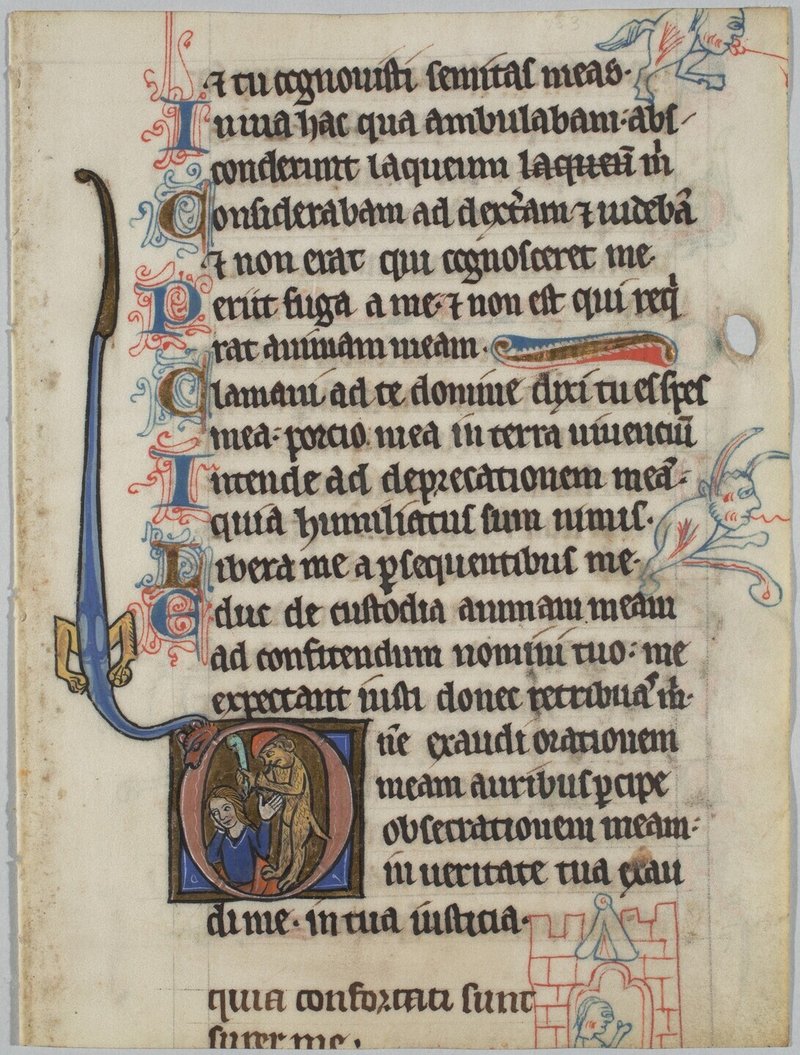 ⁊ tu cognouisti semitas meas·
In uia hac qua ambulabam· abs-
conderunt laqueum laqueū m̅
Considerabam ad dextͬam ⁊ uidebā
⁊ non erat qui cognosceret me·
Periit fuga a me· ⁊ non est qui reqͥ
rat animam meam·
Clamaui ad te domine dixi tu es spes
mea· porcio mea in terra uiuenciū
Intende ad deprecationem meā·
quia humiliatus sum nimis·
Libera me a ꝑsequentibus me·
Educ de custodia animam meam
ad confitendum nomini tuo: me
expectant iusti donec retribuaˢ m̅·
Dn̄e exaudi orationem
meam auribus ꝑcipe
obsecrationem meam:
in ueritate tua exau
di me· in tua iusticia·
quia confortati sunt
super me·